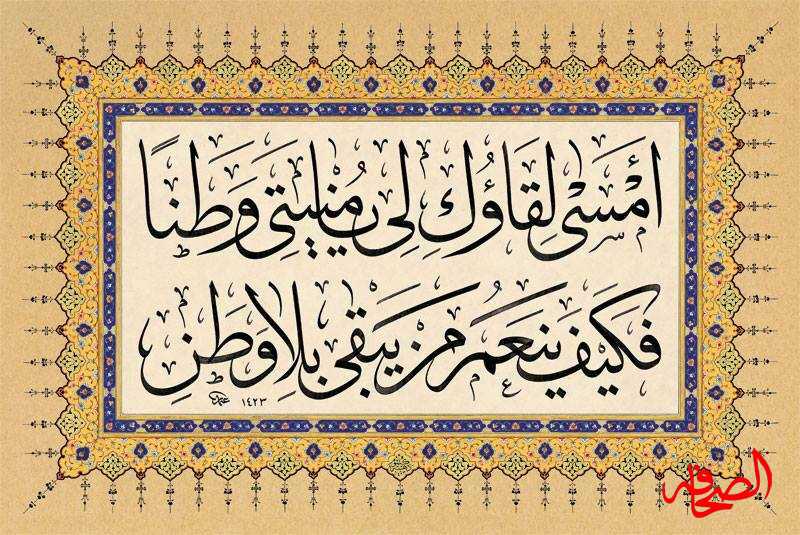 أَمْسَىٰ لِقَاؤُكَ لِي يَا مُنْيَتِي وَطَنًا
فَكَيْفَ يَنْعَمُ مَنْ يَبْقَىٰ بِلَا وَطَنِ
١٤٢٣
الصحافة